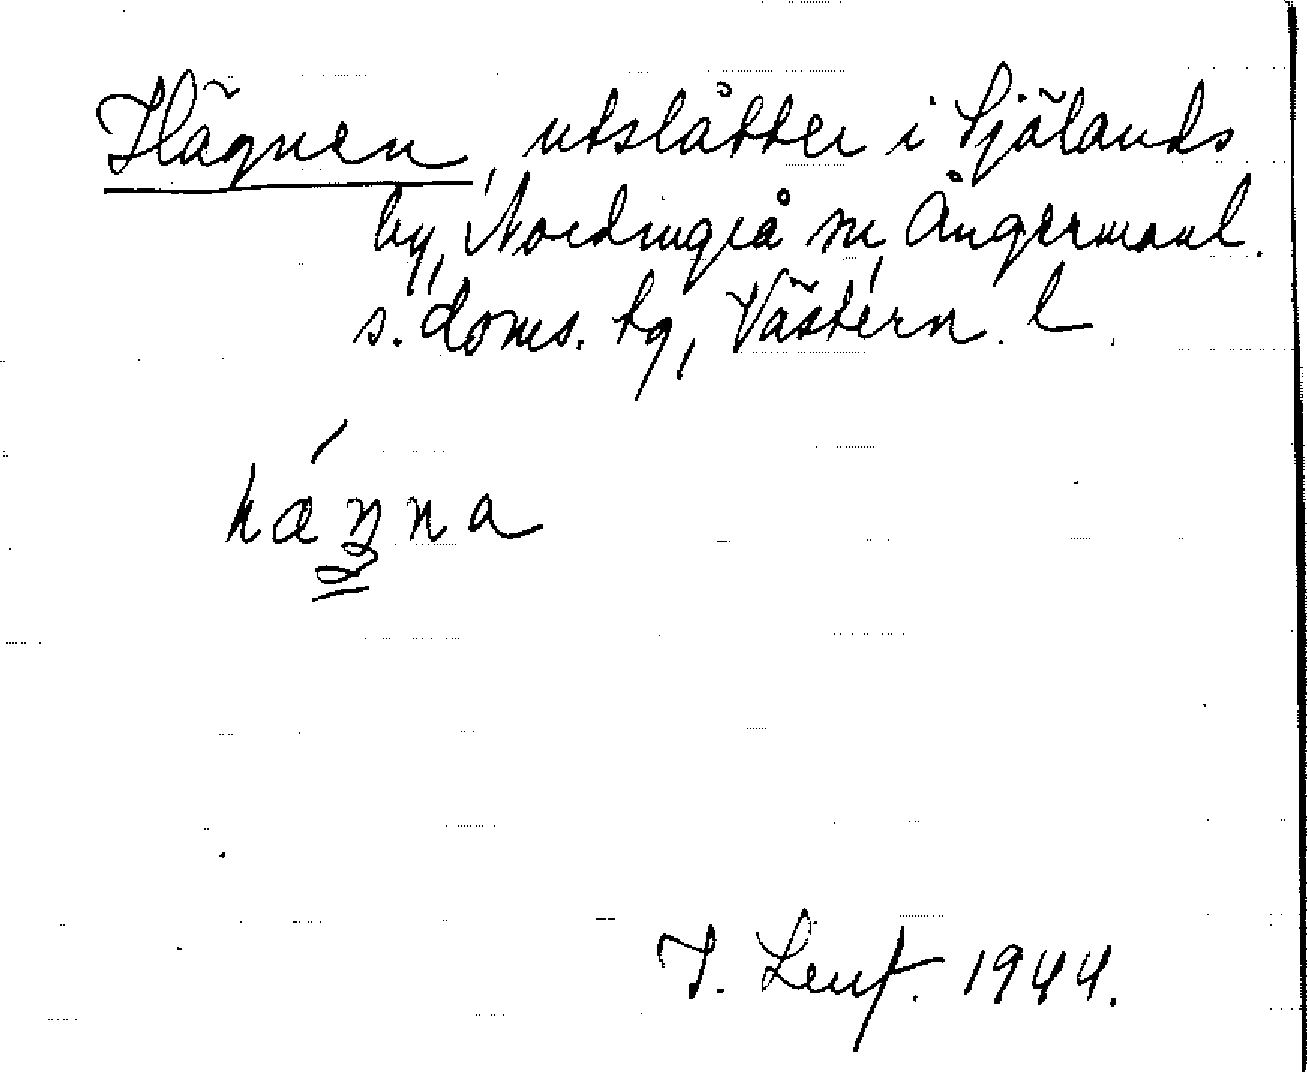 Hägnen, utslåtter i Själands
by, Nordingrå sn, Ångermanl.
s. doms. tg, Västern. l.
hæŋna
I. Lenf. 1944.